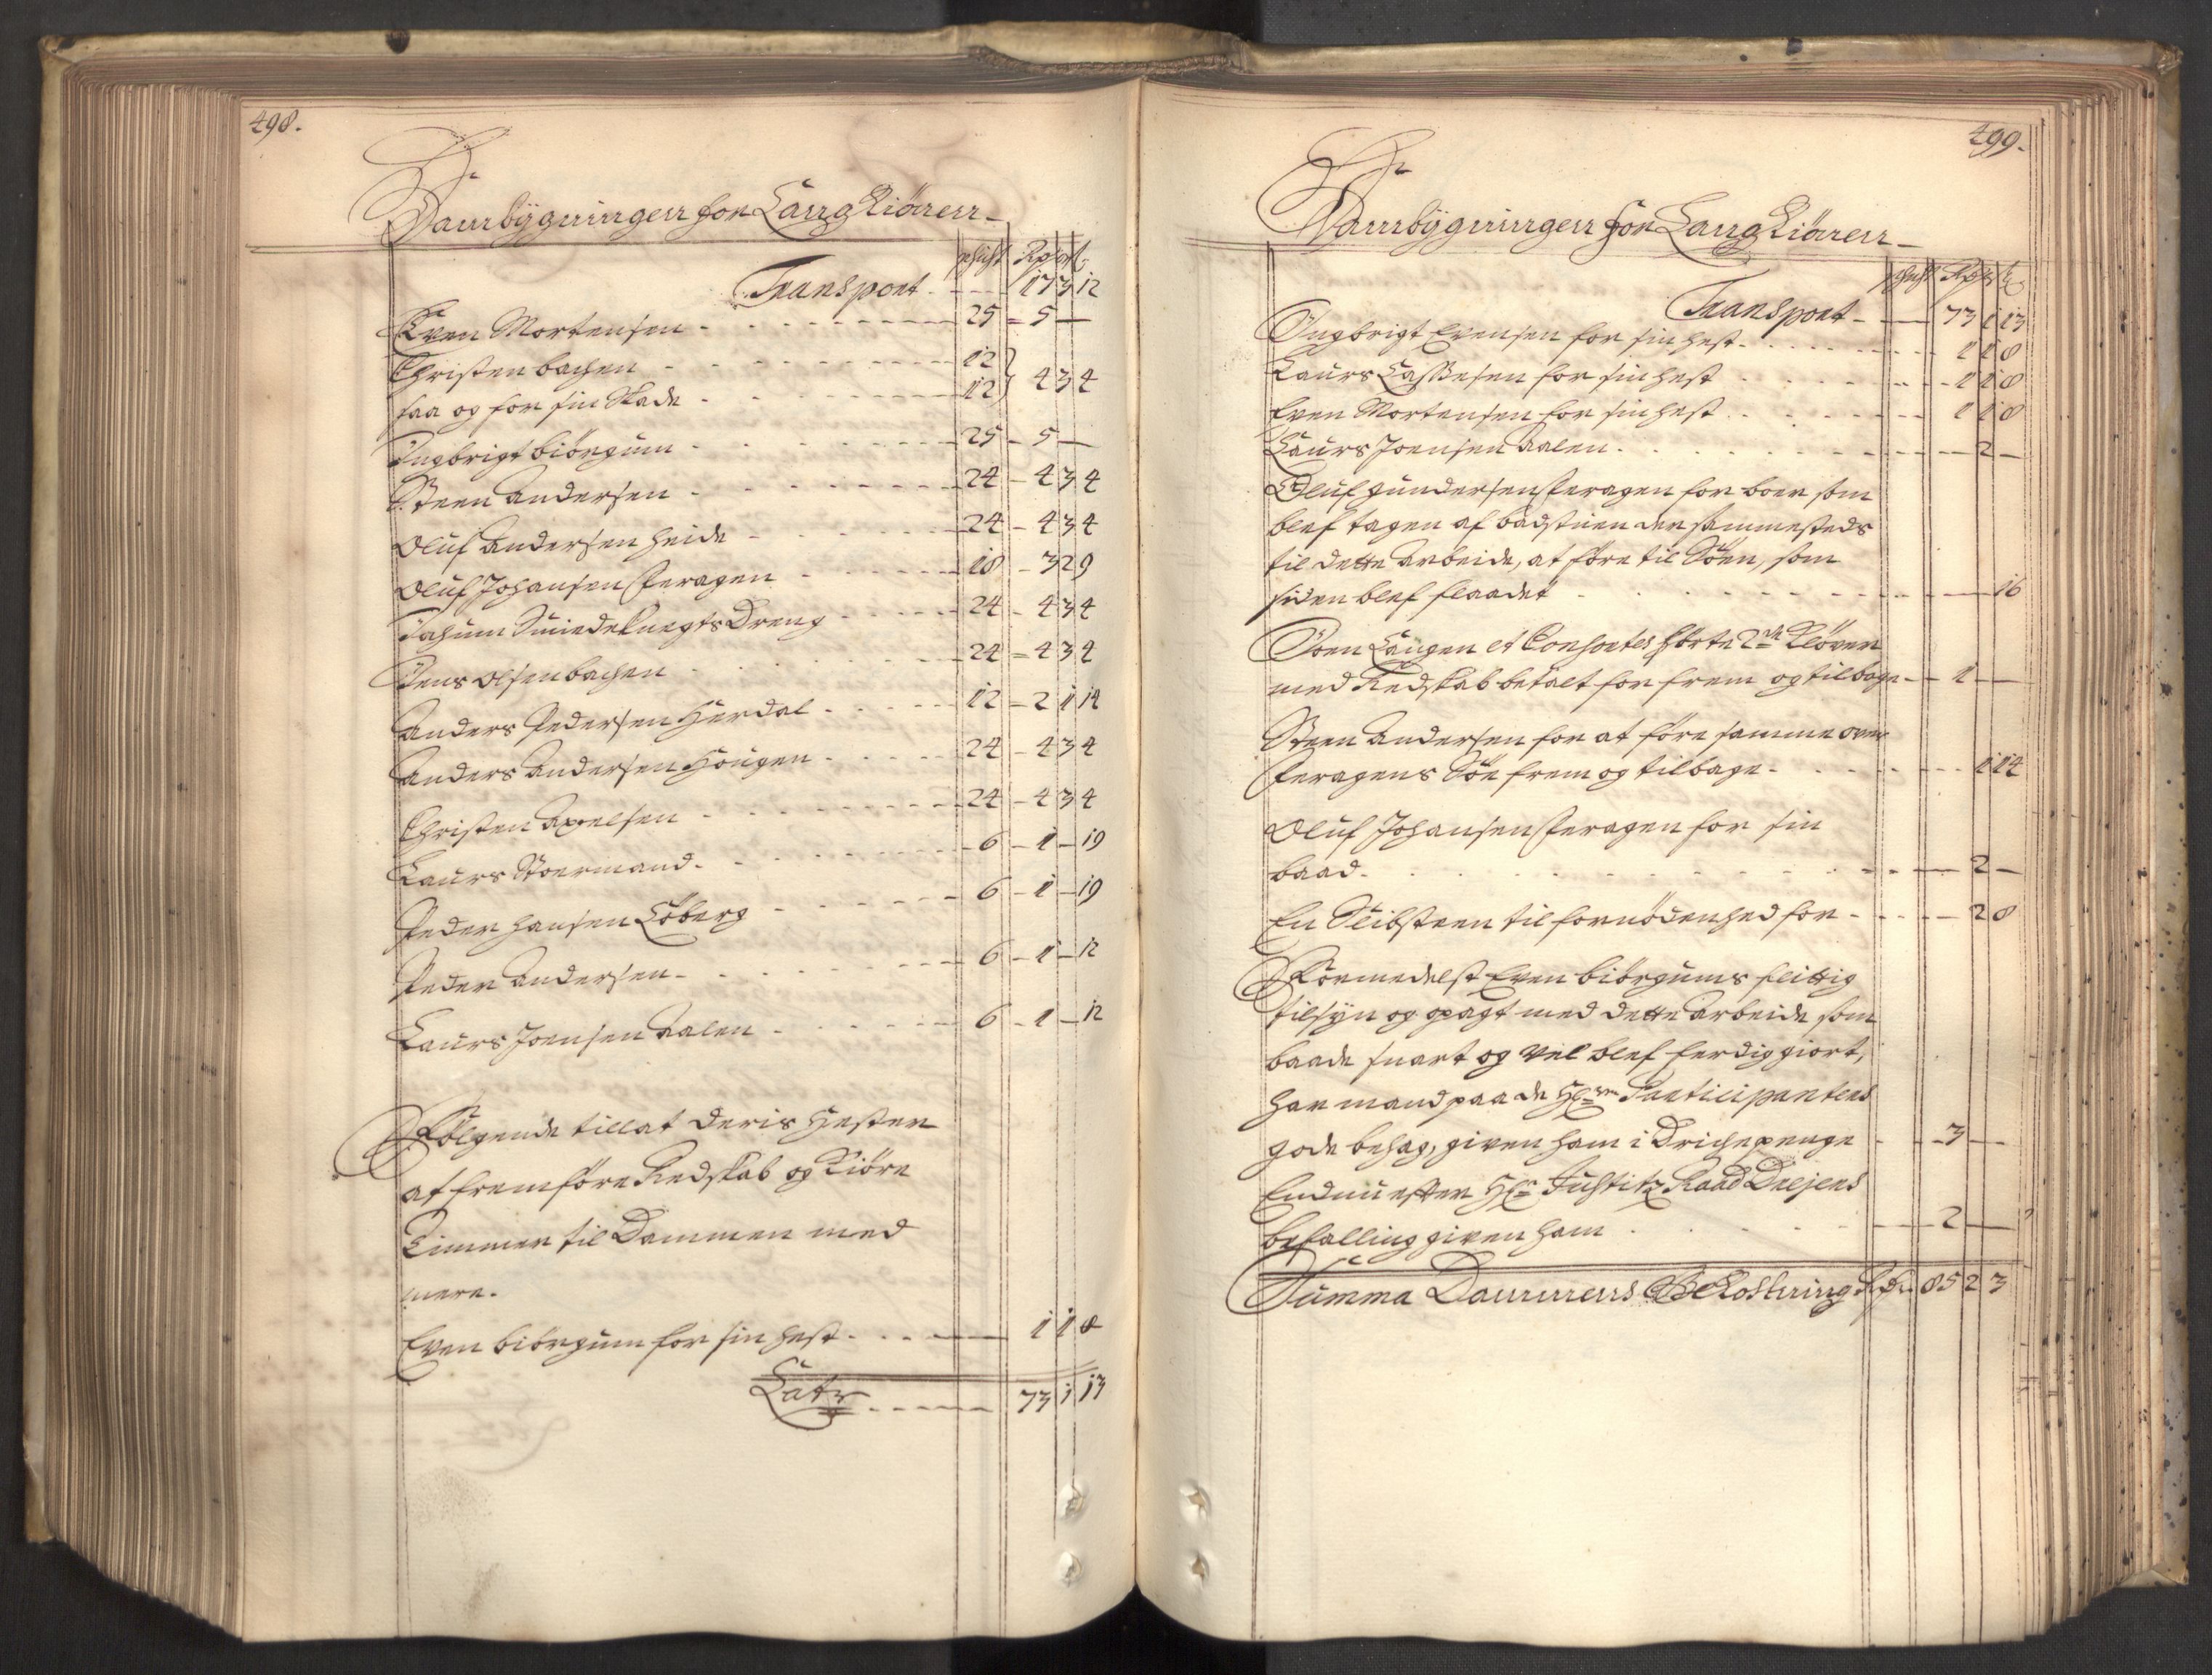 498.
Dambÿgningen for Lang Kiönen
schicht Rdr ort ß
Transport - - - 17 3 12
Even Mortensen - - - 25 - 5 —
Christen bachen - - - 12 }
saa og for sin Skade - - - 12 } 4 3 4
Ingbrigt biörgum - - - 25 - 5 —
Steen Andersen - - - 24 - 4 3 4
Oluf Andersen heide - - - 24 - 4 3 4
Oluf Johansen Feragen - - - 18 - 3 2 9
Jochum Smedeknegts Dreng - - - 24 - 4 3 4
Jens Olsen bachen - - - 24 - 4 3 4
Anders Pedersen Herdal - - - 12 - 2 1 14
Anders Andersen Hougen - - - 24 - 4 3 4
Christen Axelsen - - - 24 - 4 3 4
Laurs Stoermand - - - 6 - 1 - 19
Peder Hansen Löberg - - - 6 - 1 - 19
Peder Andersen - - - 6 - 1 - 12
Laurs Joensen Aalen - - - 6 - 1 - 12
Fölgende tillat deris Hester
at fremföre Redskab og Kiöre
Timmer til Dammen med
mere.
Even biörgum for sin hest - - - 1 1 8
Latr - - - 73 1 13
499.
Dambÿgningen for Lang Kiönen
schicht Rdr ort ß
Transport - - - 73 1 13
Ingbrigt Evensen for sin hest - - - 1 1 8
Laurs Lassesen for sin hest - - - 1 1 8
Even Mortensen for sin hest - - - 1 1 8
Laurs Joensen Aalen - - - 2 —
Oluf gundersen Feragen for boer som
blef tagen af badstuen der sammesteds
til dette Arbeide, at före til Söen, som
siden blef flaadet - - - 16
Joen Langen et Consortes förte 2de Klöver
med Redskab betalt for frem og tilbage - - 1 —
Steen Andersen for at före samme over
Feragens Söe frem og tilbage - - - 1 14
Oluf Johansen Feragen for sin
baad - - - 2 —
En Slibsteen til fornödenhed for - - - 2 8
Formedelst Even biörgums flittig
tilsÿn og opagt med dette Arbeide som
baade snart og vel blef ferdig giort,
har mand paa de Hrer Participanters
gode behag, given ham i Drickepenge - - 3 —
Endnu efter Hr Justitz Raad Drejers
befalling given ham - - - 2 —
Summa Dammens Bekostning Rdr 85 2 3